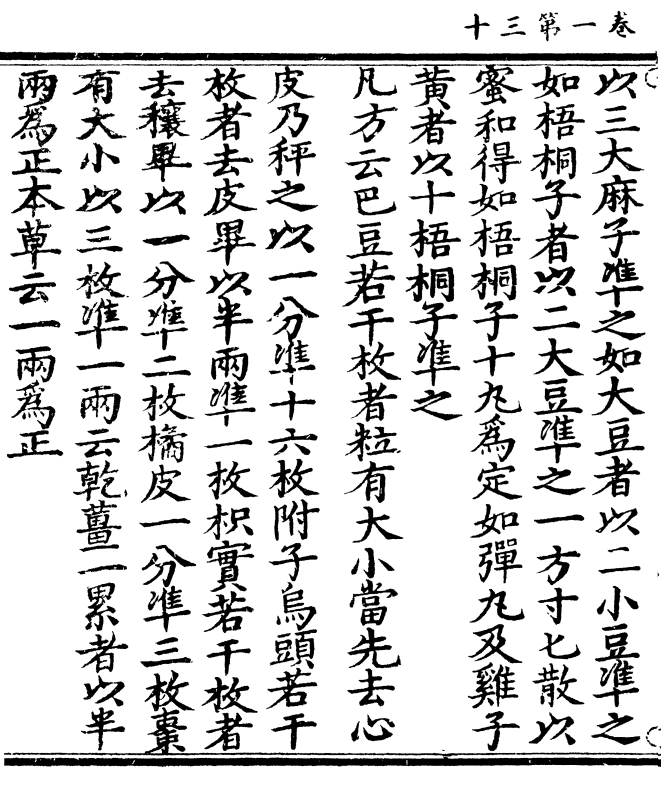 卷一第三十
以三大麻子准之如大豆者以二小豆准之
如梧桐子者以二大豆准之一方寸匕散以
蜜和得如梧桐子十丸爲定如彈丸及雞子
黄者以十梧桐子准之
凡方云巴豆若干枚者粒有大小當先去心
皮乃秤之以一分準十六枚附子烏頭若干
枚者去皮畢以半兩準一枚枳實若干枚者
去穰畢以一分準二枚橘皮一分準三枚棗
有大小以三枚準一兩云乾薑二累者以半
兩爲正本草云一兩爲正